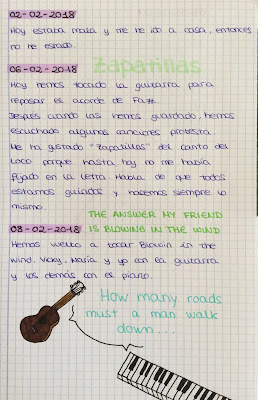 02-02-2018
Hoy estaba mala y me he ido a casa, entonces
no he estado.
06-02-2018 Zapatillas
Hoy hemos tocado la guitarra para
repasar el acorde de Fa7.
Después cuando las hemos guardado, hemos
escuchado algunas canciones protesta.
Me ha gustado "Zapatillas" del canto del
Loco porque hasta hoy no me había
fijado en la letra. Habla de que todos
estamos guiados y hacemos siempre lo
mismo.
THE ANSWER MY FRIEND
IS BLOWING IN THE WIND
08-02-2018
Hemos vuelto a tocar Blowin in the
wind. Vicky, María y yo con la guitarra
y los demás con el piano.
How many roads
must a man walk
down...